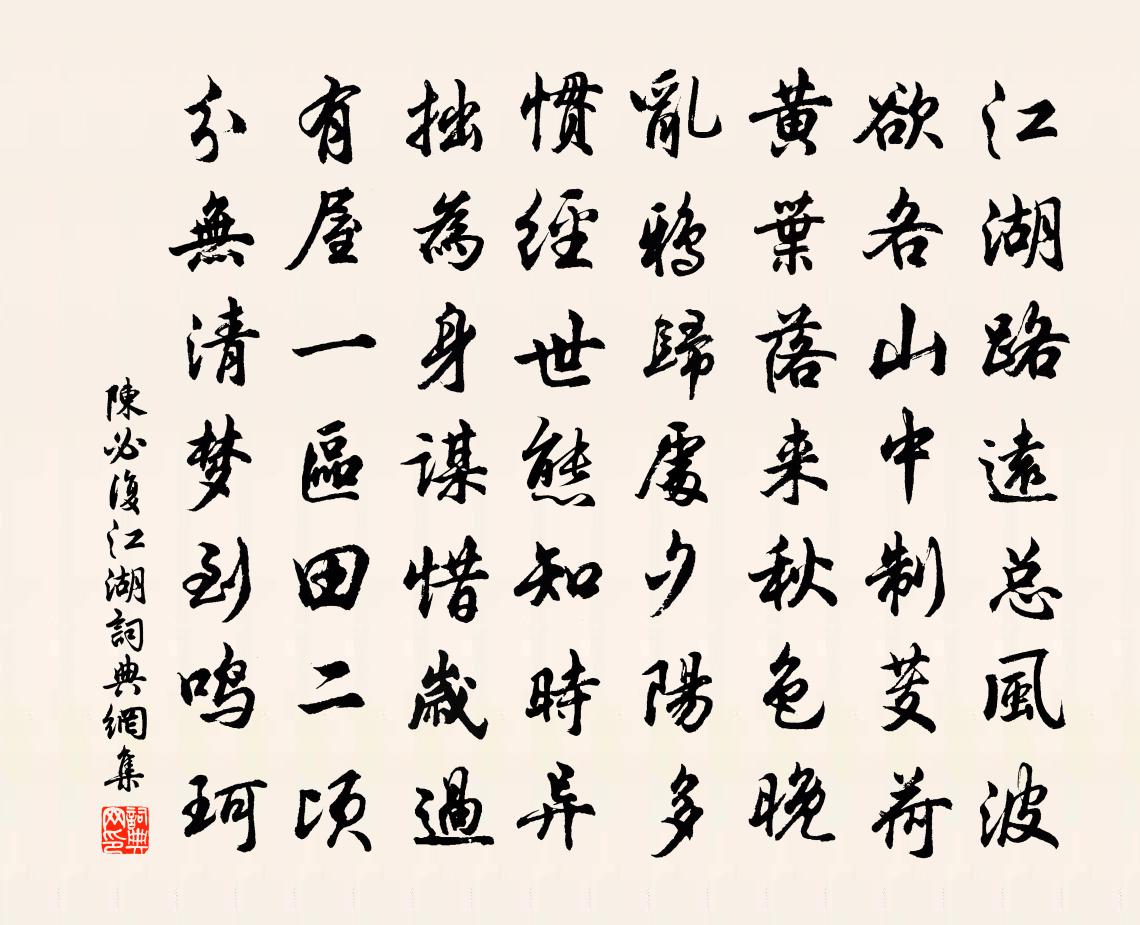 江湖路遠总風波
欲各山中制芰荷
黃葉落来秋色晚
亂鴉歸處夕陽多
慣經世態知時异
拙為身謀惜歲過
有屋一區田二頃
分無清梦到鸣珂
陳必復江湖詞典網集
詞典网印